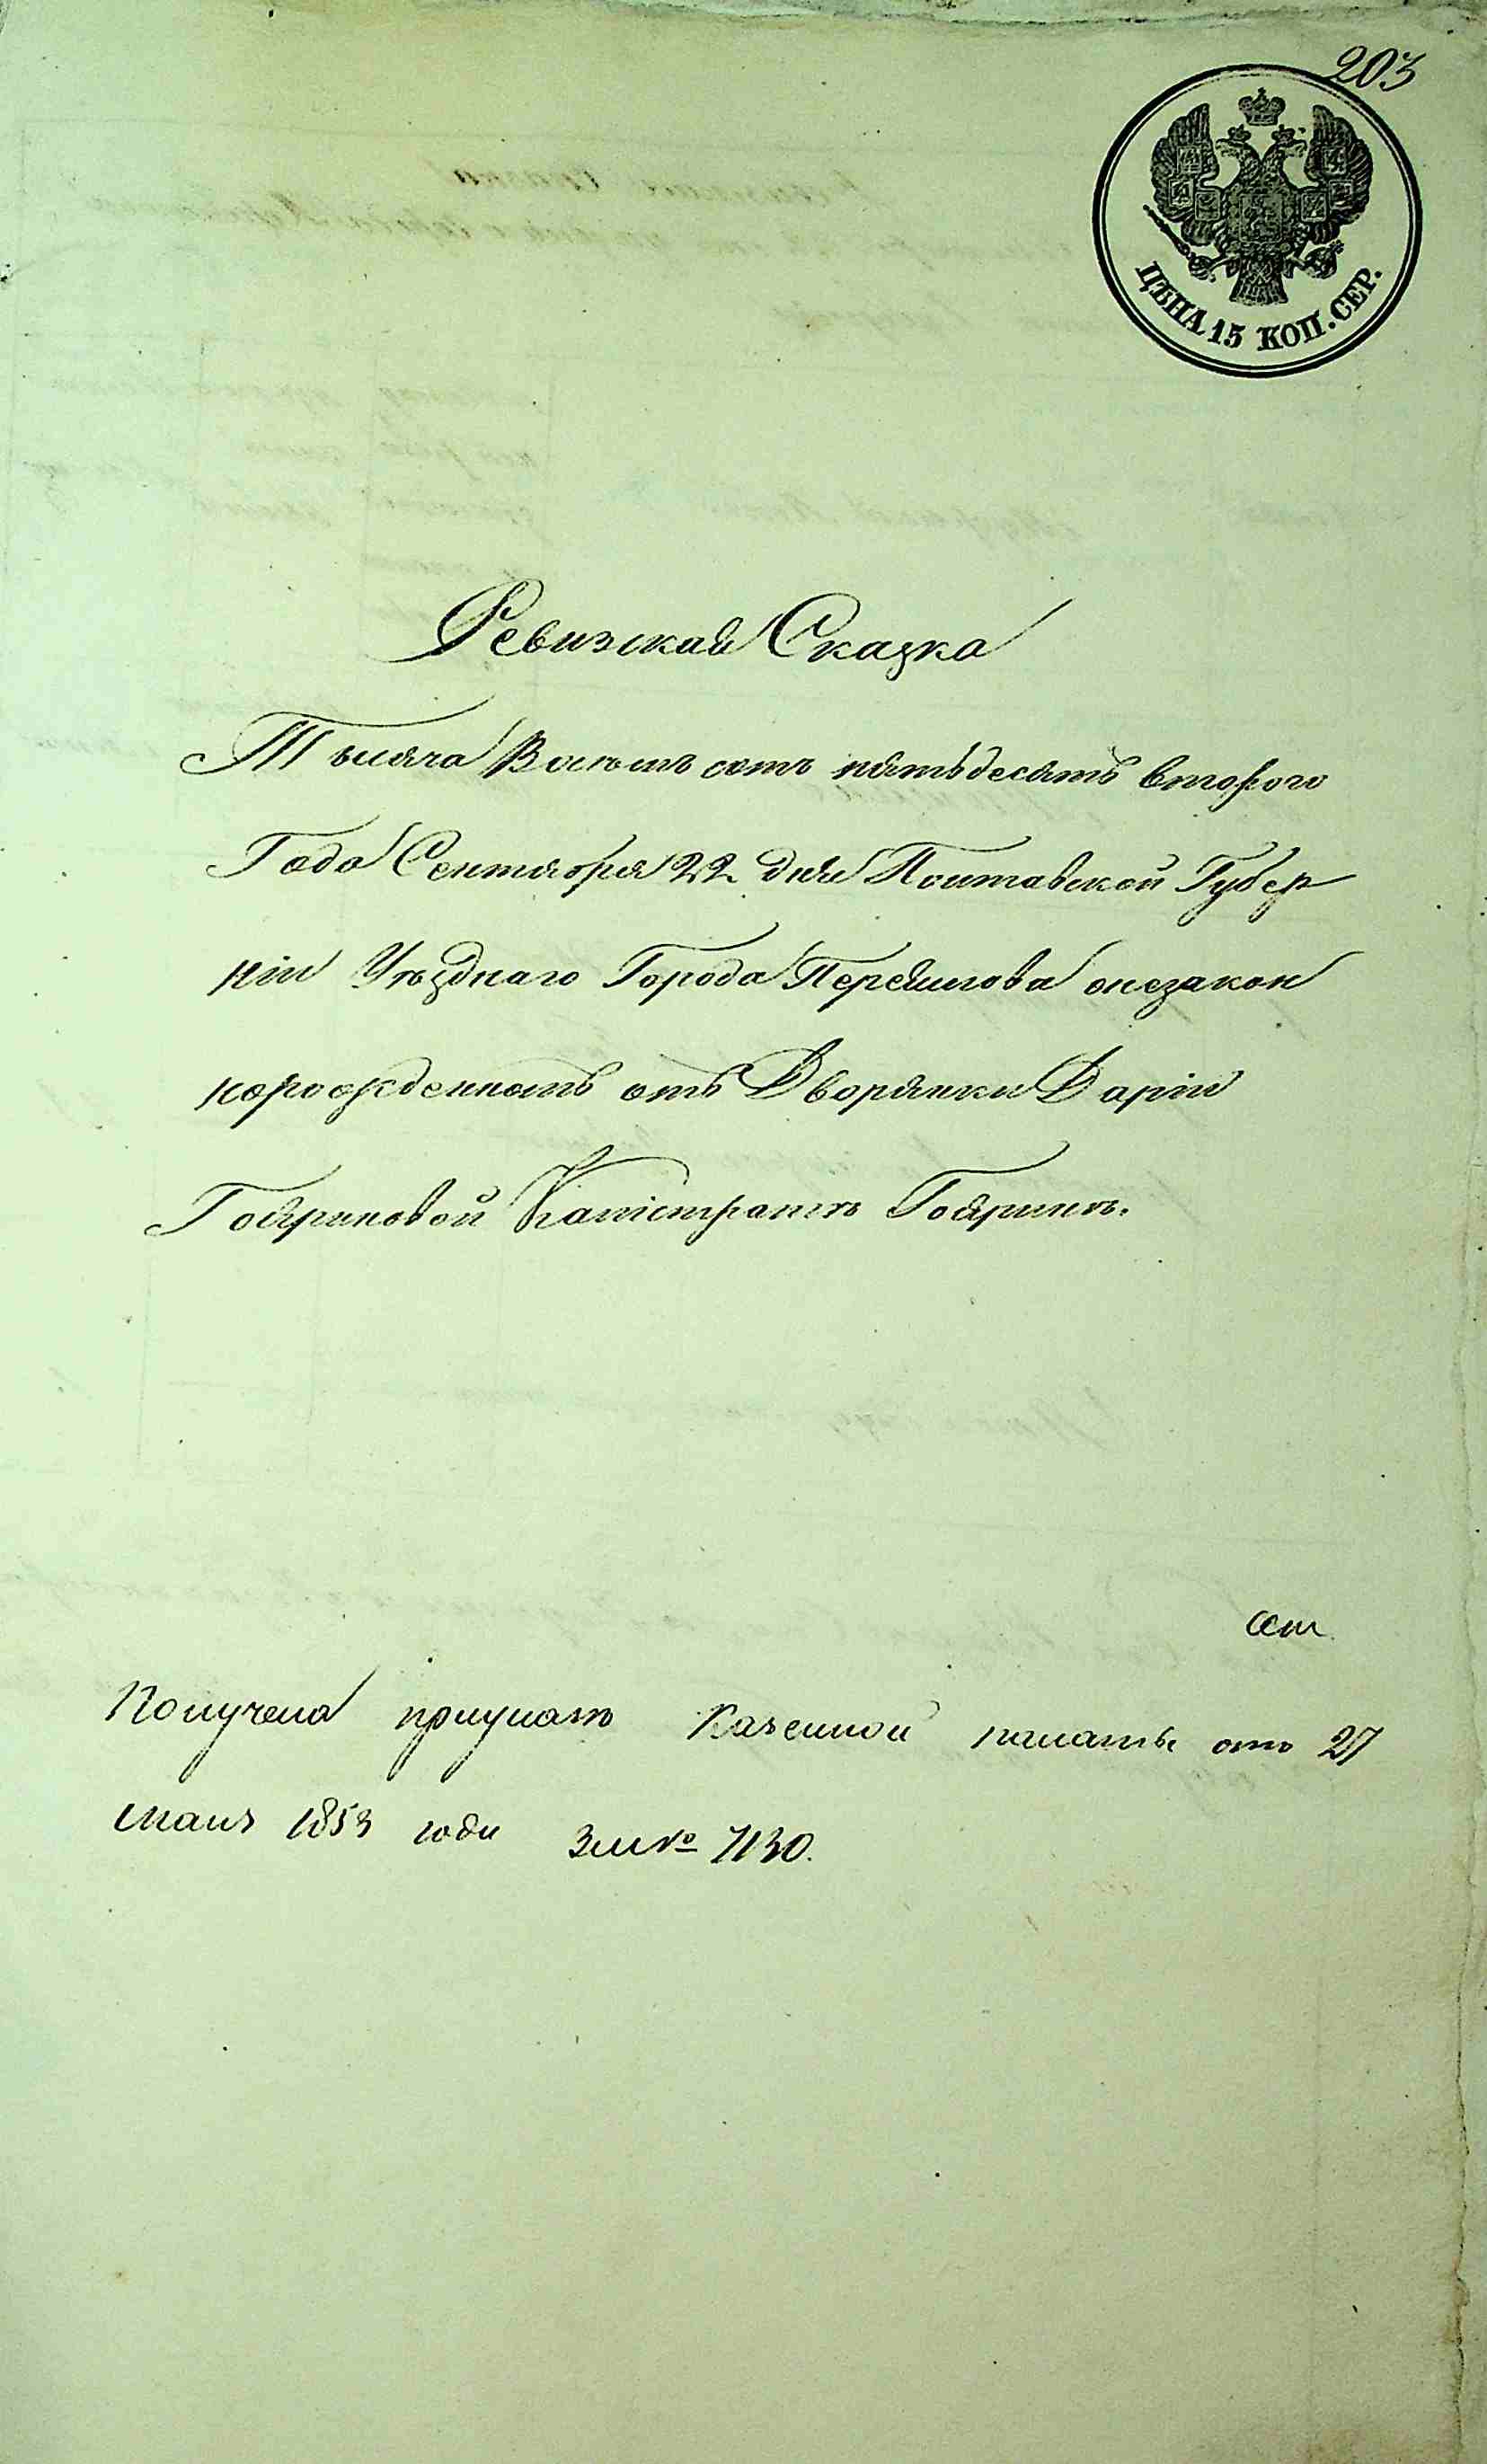 203
ЦѢНА 15 КОП. СЕР.
Ревизская Сказка
Тысяча Восемъ сотъ пятьдесятъ второго
Года Сентября 22 дня Полтавской Губер
ніи Уѣзднаго Города Переяслова онезакон
норожденномъ отъ Дворянки Даріи
Гояриновой Калістратѣ Гояринѣ.
Получена приуказѣ Казенной палаты отъ 27
мая 1853 года за № 7130.